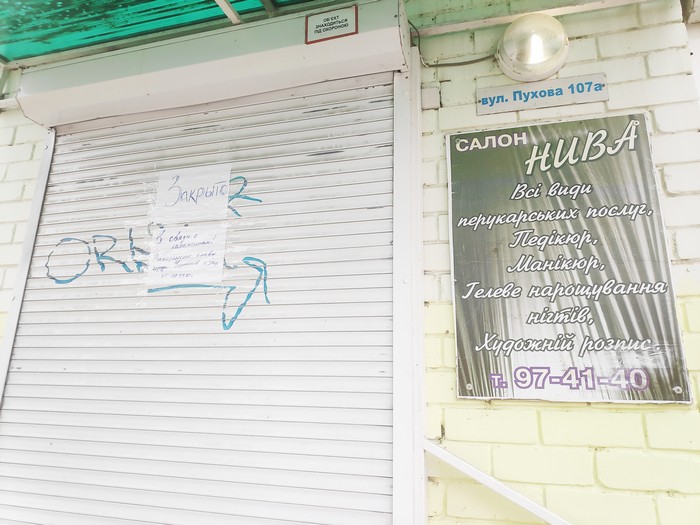 ОБ'ЄКТ
ЗНАХОДИТЬСЯ
ПІД ОХОРОНОЮ
вул. Пухова 107а
САЛОН
НИВА
Всі види
перукарських послуг,
Педікюр,
Манікюр,
Гелеве нарощування
нігтів,
Художній розпис.
т. 97-41-40
Закрыто